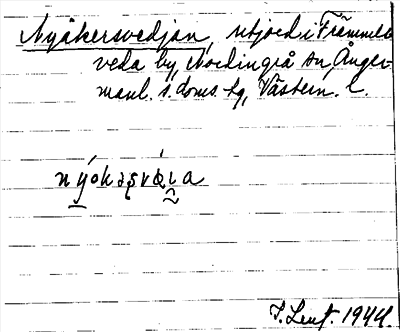 Nyåkersvedjan, utjord i Främmelsveda
by, Nordingrå sn, Ånger-
manl. s. doms. hg, Västern. l.
nýokəṣvǽɩa
1944.